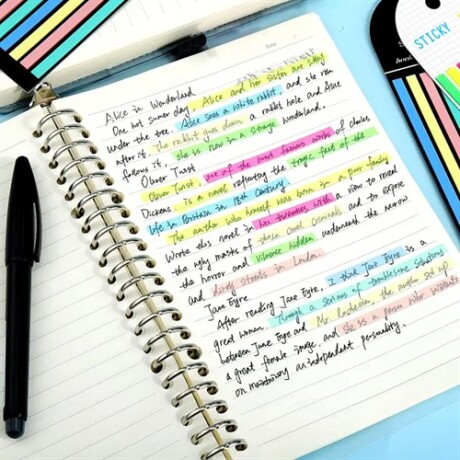 Alice in Wonderland
One hot summer day, Alice and her sister are sitting
under the tree. Alice sees a white rabbit, and she runs
after it. The rabbit goes down a rabbit hole, and Alice
follows it. she is now in a strange wonderland.
Oliver Twist
Oliver Twist, one of the most famous works of Charles
Dickens, is a novel reflecting the tragic fact of the
life in Britain in 18th Century.
The author who himself was born in a poor family
Wrote this novel in his twenties with a view to reveal
the ugly masks of these cruel criminals and to expose
the horror and violence hidden underneath the narrow
and dirty streets in London.
Jane Eyre
After reading Jane Eyre, I think Jane Eyre is a
great women. Through a serious of troublesome situations
between Jane Eyre and Mr. Rochester, the author set up
a great female image, and she is a person who insistents
on maintaining an independent personality.
STICKY